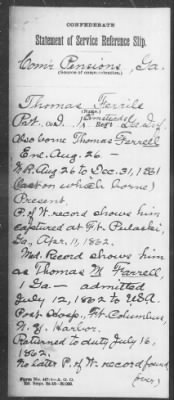 CONFEDERATE
Statement of Service Reference Slip.
Com'r Pensions, Ga.
(Source of communication.)
Thomas Ferrile
(Name.)
Pvt. Co. D. 1 Ga. Inf.
Also borne Thomas Farrell
Enl. Aug. 26 –
M.R. Aug 26 to Dec. 31, 1861
(last on which borne)
Present.
P. of W. record shows him
captured at Ft. Pulaski,
Ga, Apr. 11, 1862.
Med. Record shows him
as Thomas M. Farrell,
1 Ga – admitted
July 12, 1862 to USA
Post Hosp., Ft. Columbus,
N. Y. Harbor.
Returned to duty July 16,
1862.
No later P. of W. record found
(over)